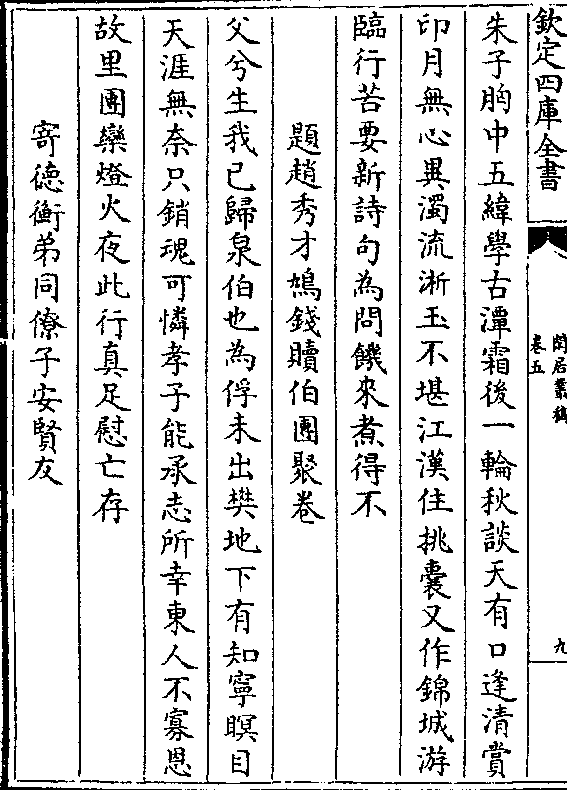 欽定四庫全書
閒居叢稿
卷五
九
朱子胸中五緯學古潭霜後一輪秋談天有口逢清賞
印月無心異濁流淅玉不堪江漢住挑囊又作錦城游
臨行苦要新詩句為問饑來煮得不
題趙秀才鳩錢贖伯團聚卷
父兮生我已歸泉伯也為俘未出樊地下有知寧瞑目
天涯無奈只銷魂可憐孝子能承志所幸東人不寡恩
故里團欒燈火夜此行真足慰亡存
寄德衡弟同僚子安賢友